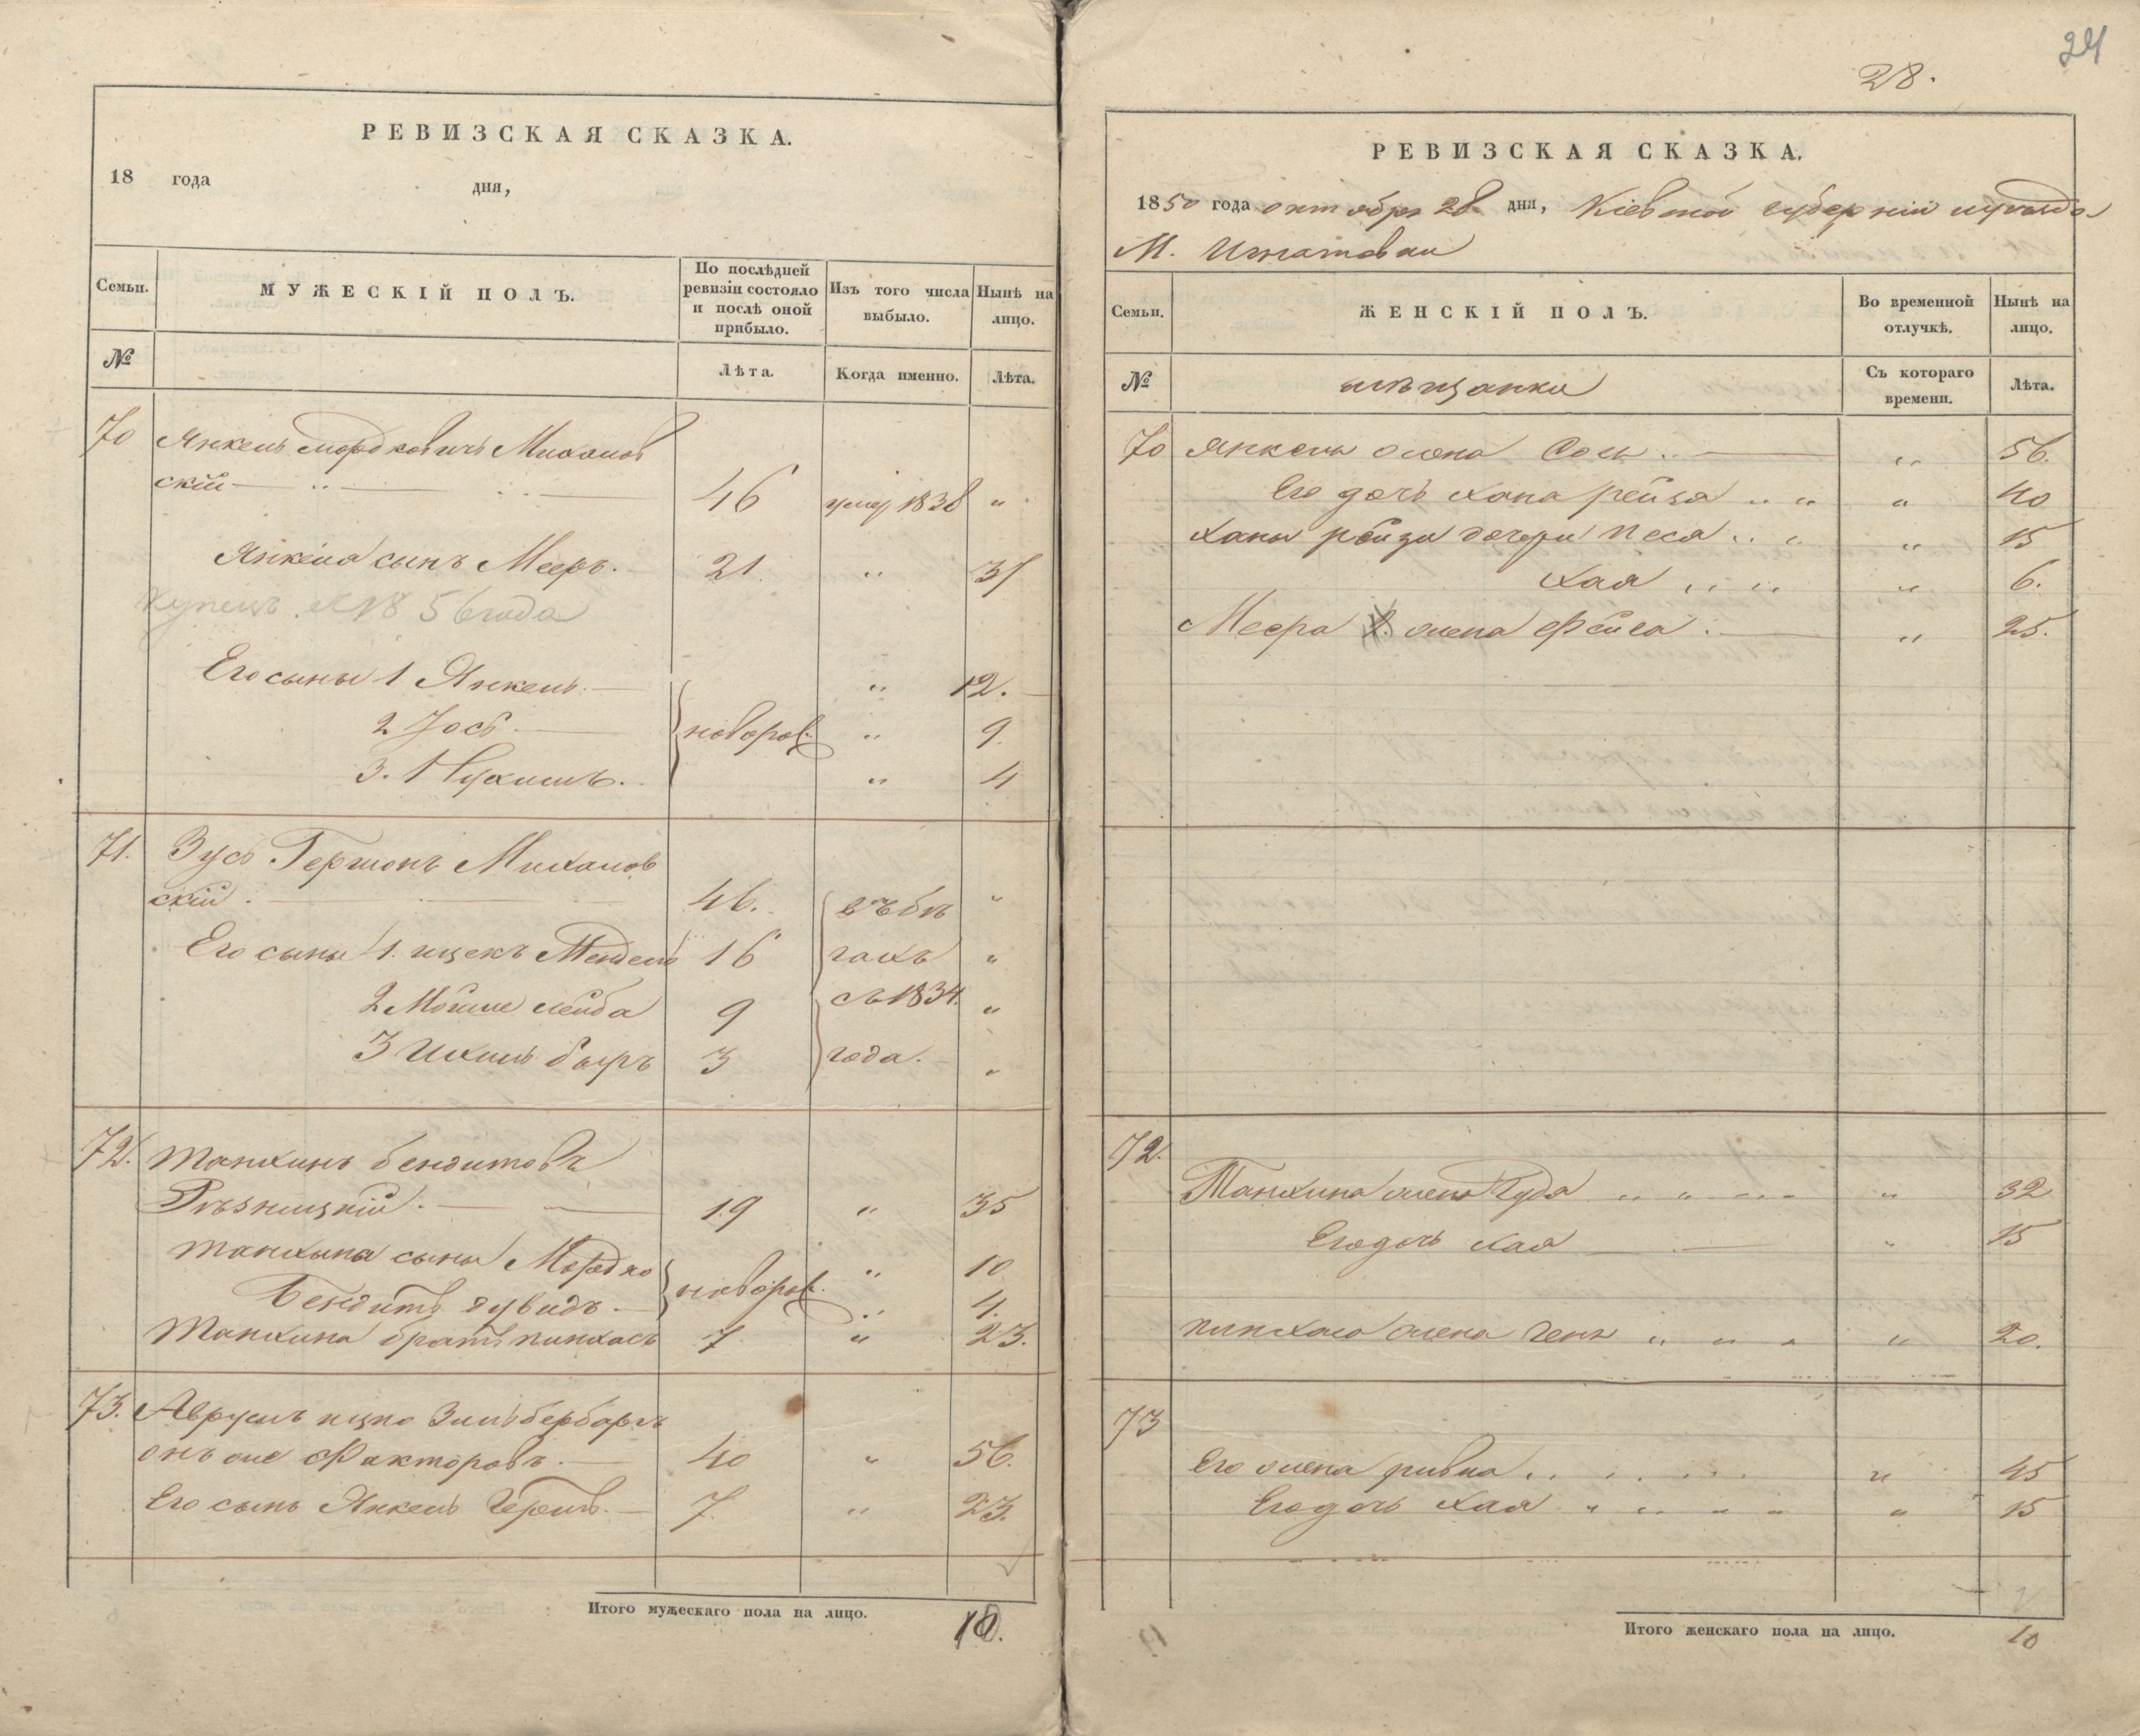 РЕВИЗСКАЯ СКАЗКА.
18 года дня,
Семьи.
МУЖЕСКІЙ ПОЛЪ.
По послѣдней ревизіи состояло и послѣ оной прибыло.
Изъ того числа выбыло.
Нынѣ на лицо.
№
Лѣта.
Когда именно.
Лѣта.
70 Янкель Мордковичъ Михайлов
скій 46 умер 1838 "
Янкеля сынъ Мееръ. 21. " 37
Купецъ 1856 года
Его сыны 1 Янкель. " 12.
2 Йось новорож. " 9.
3. Нухимъ. " 4
71. Зусь Гершонъ Михайлов
скій 46. въ бѣ "
Его сыны 1. Ицекъ Мендель 16 гахъ "
2 Мойше Лейба 9 съ 1834. "
3 Ихиль Беръ 3 года. "
72. Танхинъ Бендитовъ
Рѣзницкій. 19 " 35
Танхина сыны Мордко новорож. " 10
Бендитъ Дувидъ. " 4.
Танхина братъ Пинхасъ 7 " 23.
73. Аврумъ Ицко Зильбербаргъ
онъ же Факторовъ. 40 " 56.
Его сынъ Янкель Гершъ. 7. " 23.
Итого мужескаго пола на лицо. 10.
24
28.
РЕВИЗСКАЯ СКАЗКА.
1850 года октября 28 дня, Кіевской губерніи уѣзда
М. Игнатовки
Семьи.
ЖЕНСКІЙ ПОЛЪ.
Во временной отлучкѣ.
Нынѣ на лицо.
№
мѣщанки
Съ котораго времени.
Лѣта.
70 Янкеля жена " 56.
Его дочь Хана Рейза " " " 40
Ханы Рейзи дочери Песя " " 15
Хая " " " 6.
Меера жена Фейга. " 25.
72.
Танхина жена Гудя " " " " 32
Его дочь Хая " 15
Пинхаса жена Геня " " " " 20.
73
Его жена Ривка " 45
Его дочь Хая " " " " " 15
Итого женскаго пола на лицо. 10